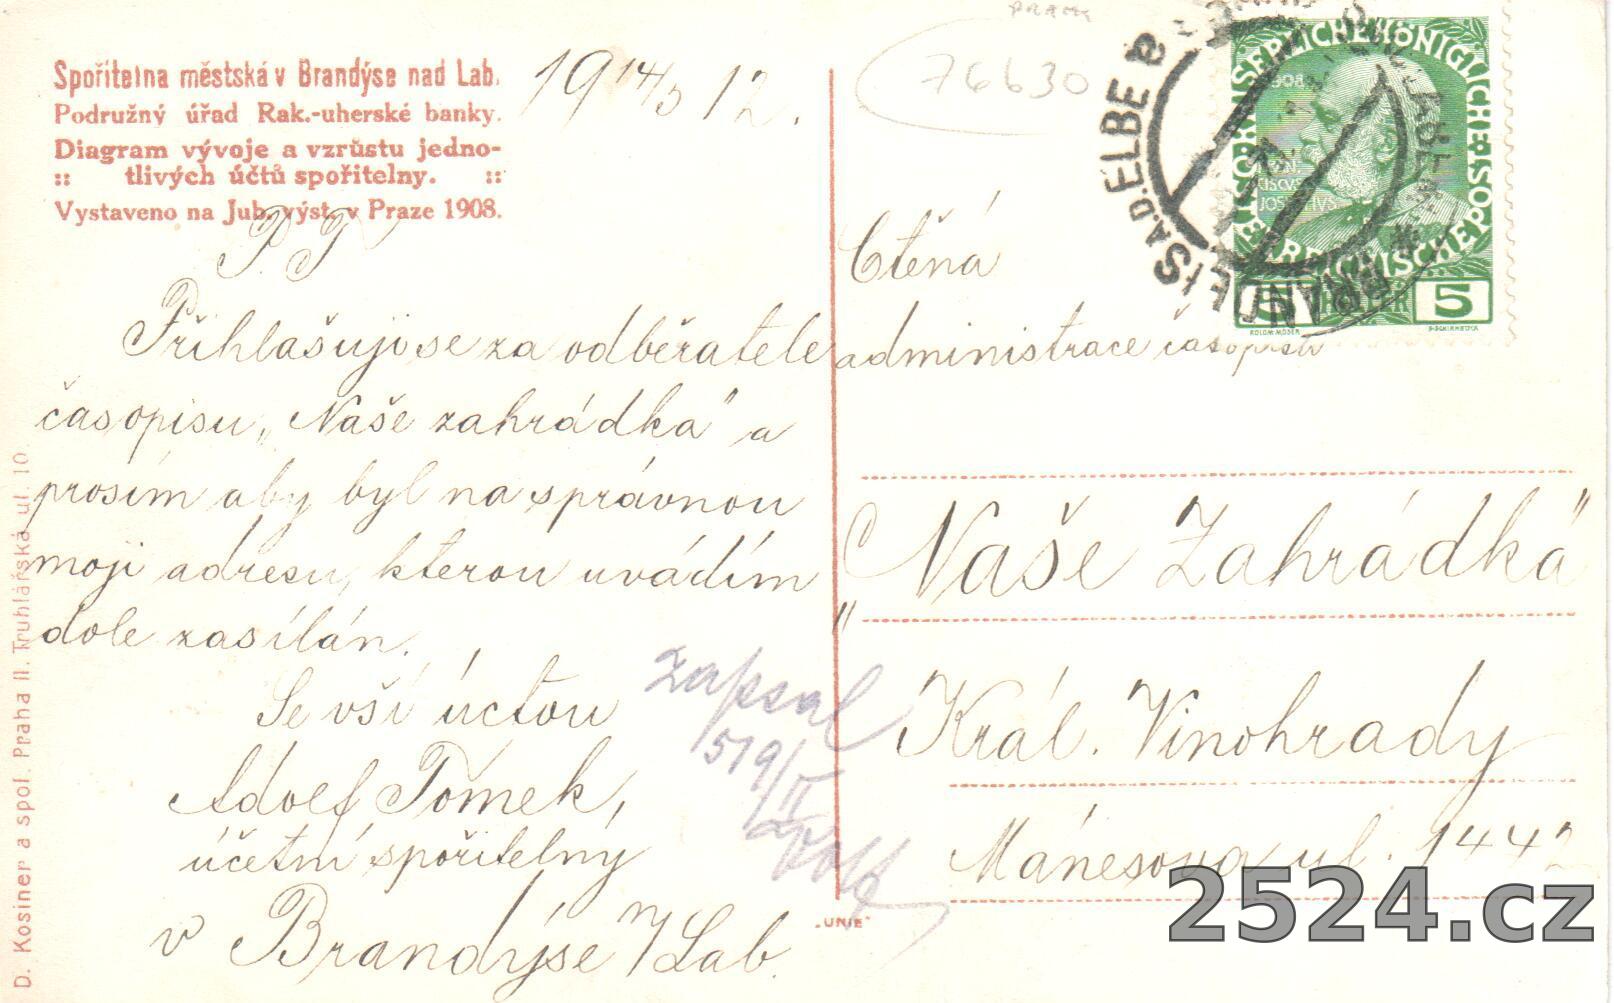 Spořitelna městská v Brandýse nad Lab.
Podružný úřad Rak.-uherské banky.
Diagram vývoje a vzrůstu jedno-
:: tlivých účtů spořitelny. ::
Vystaveno na Jub. výst. v Praze 1908.
19 14/5 12.
76630
P. T.
Přihlašuji se za odběratele
časopisu „Naše zahrádka" a
prosím aby byl na správnou
moji adresu, kterou uvádím
dole zasílán.
Se vší úctou
Adolf Tomek,
účetní spořitelny
v Brandýse n/Lab.
zapsal
519/II
Ctěná
administrace časopisu
„Naše Zahrádka"
Král. Vinohrady
Mánesova ul. 1442
BRANDEIS A.D. ELBE
5 HELLER 5
KOLOM. MOSER
F. SCHIRNBÖCK
D. Kosiner a spol. Praha II. Truhlářská ul. 10
„UNIE"
2524.cz